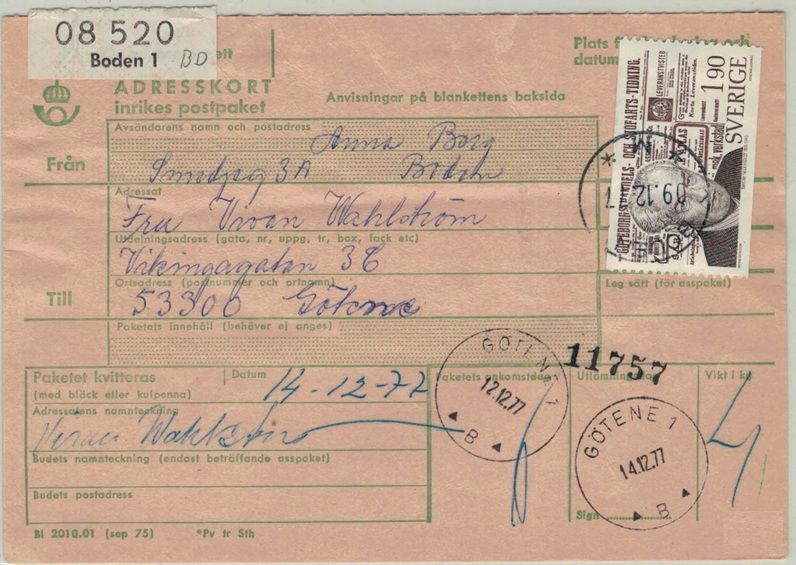 08 520
Boden 1 BD
ADRESSKORT
inrikes postpaket
Anvisningar på blankettens baksida
Plats
datum
1 90
SVERIGE
GÖTEBORGS HANDELS- OCH SJÖFARTS-TIDNING.
09.12
Från
Avsändarens namn och postadress
Anna Borg
Smedjeg 3A Boden
Adressat
Fru Vivan Wahlström
Utdelningsadress (gata, nr, uppg, tr, box, fack etc)
Vikingagatan 3C
Till
Ortsadress (postnummer och ortnamn)
53300 Götene
Leg sätt (för asspaket)
Paketets innehåll (behöver ej anges)
Paketet kvitteras
(med bläck eller kulpenna)
Datum
14-12-77
Paketets ankomstdag
Utlämningsdag
Vikt i kg
11757
GÖTENE 1
12.12.77
B
GÖTENE 1
14.12.77
B
4
Adressatens namnteckning
Vivan Wahlström
Budets namnteckning (endast beträffande asspaket)
Budets postadress
Sign
Bl 2010.01 (sep 75) *Pv tr Sth